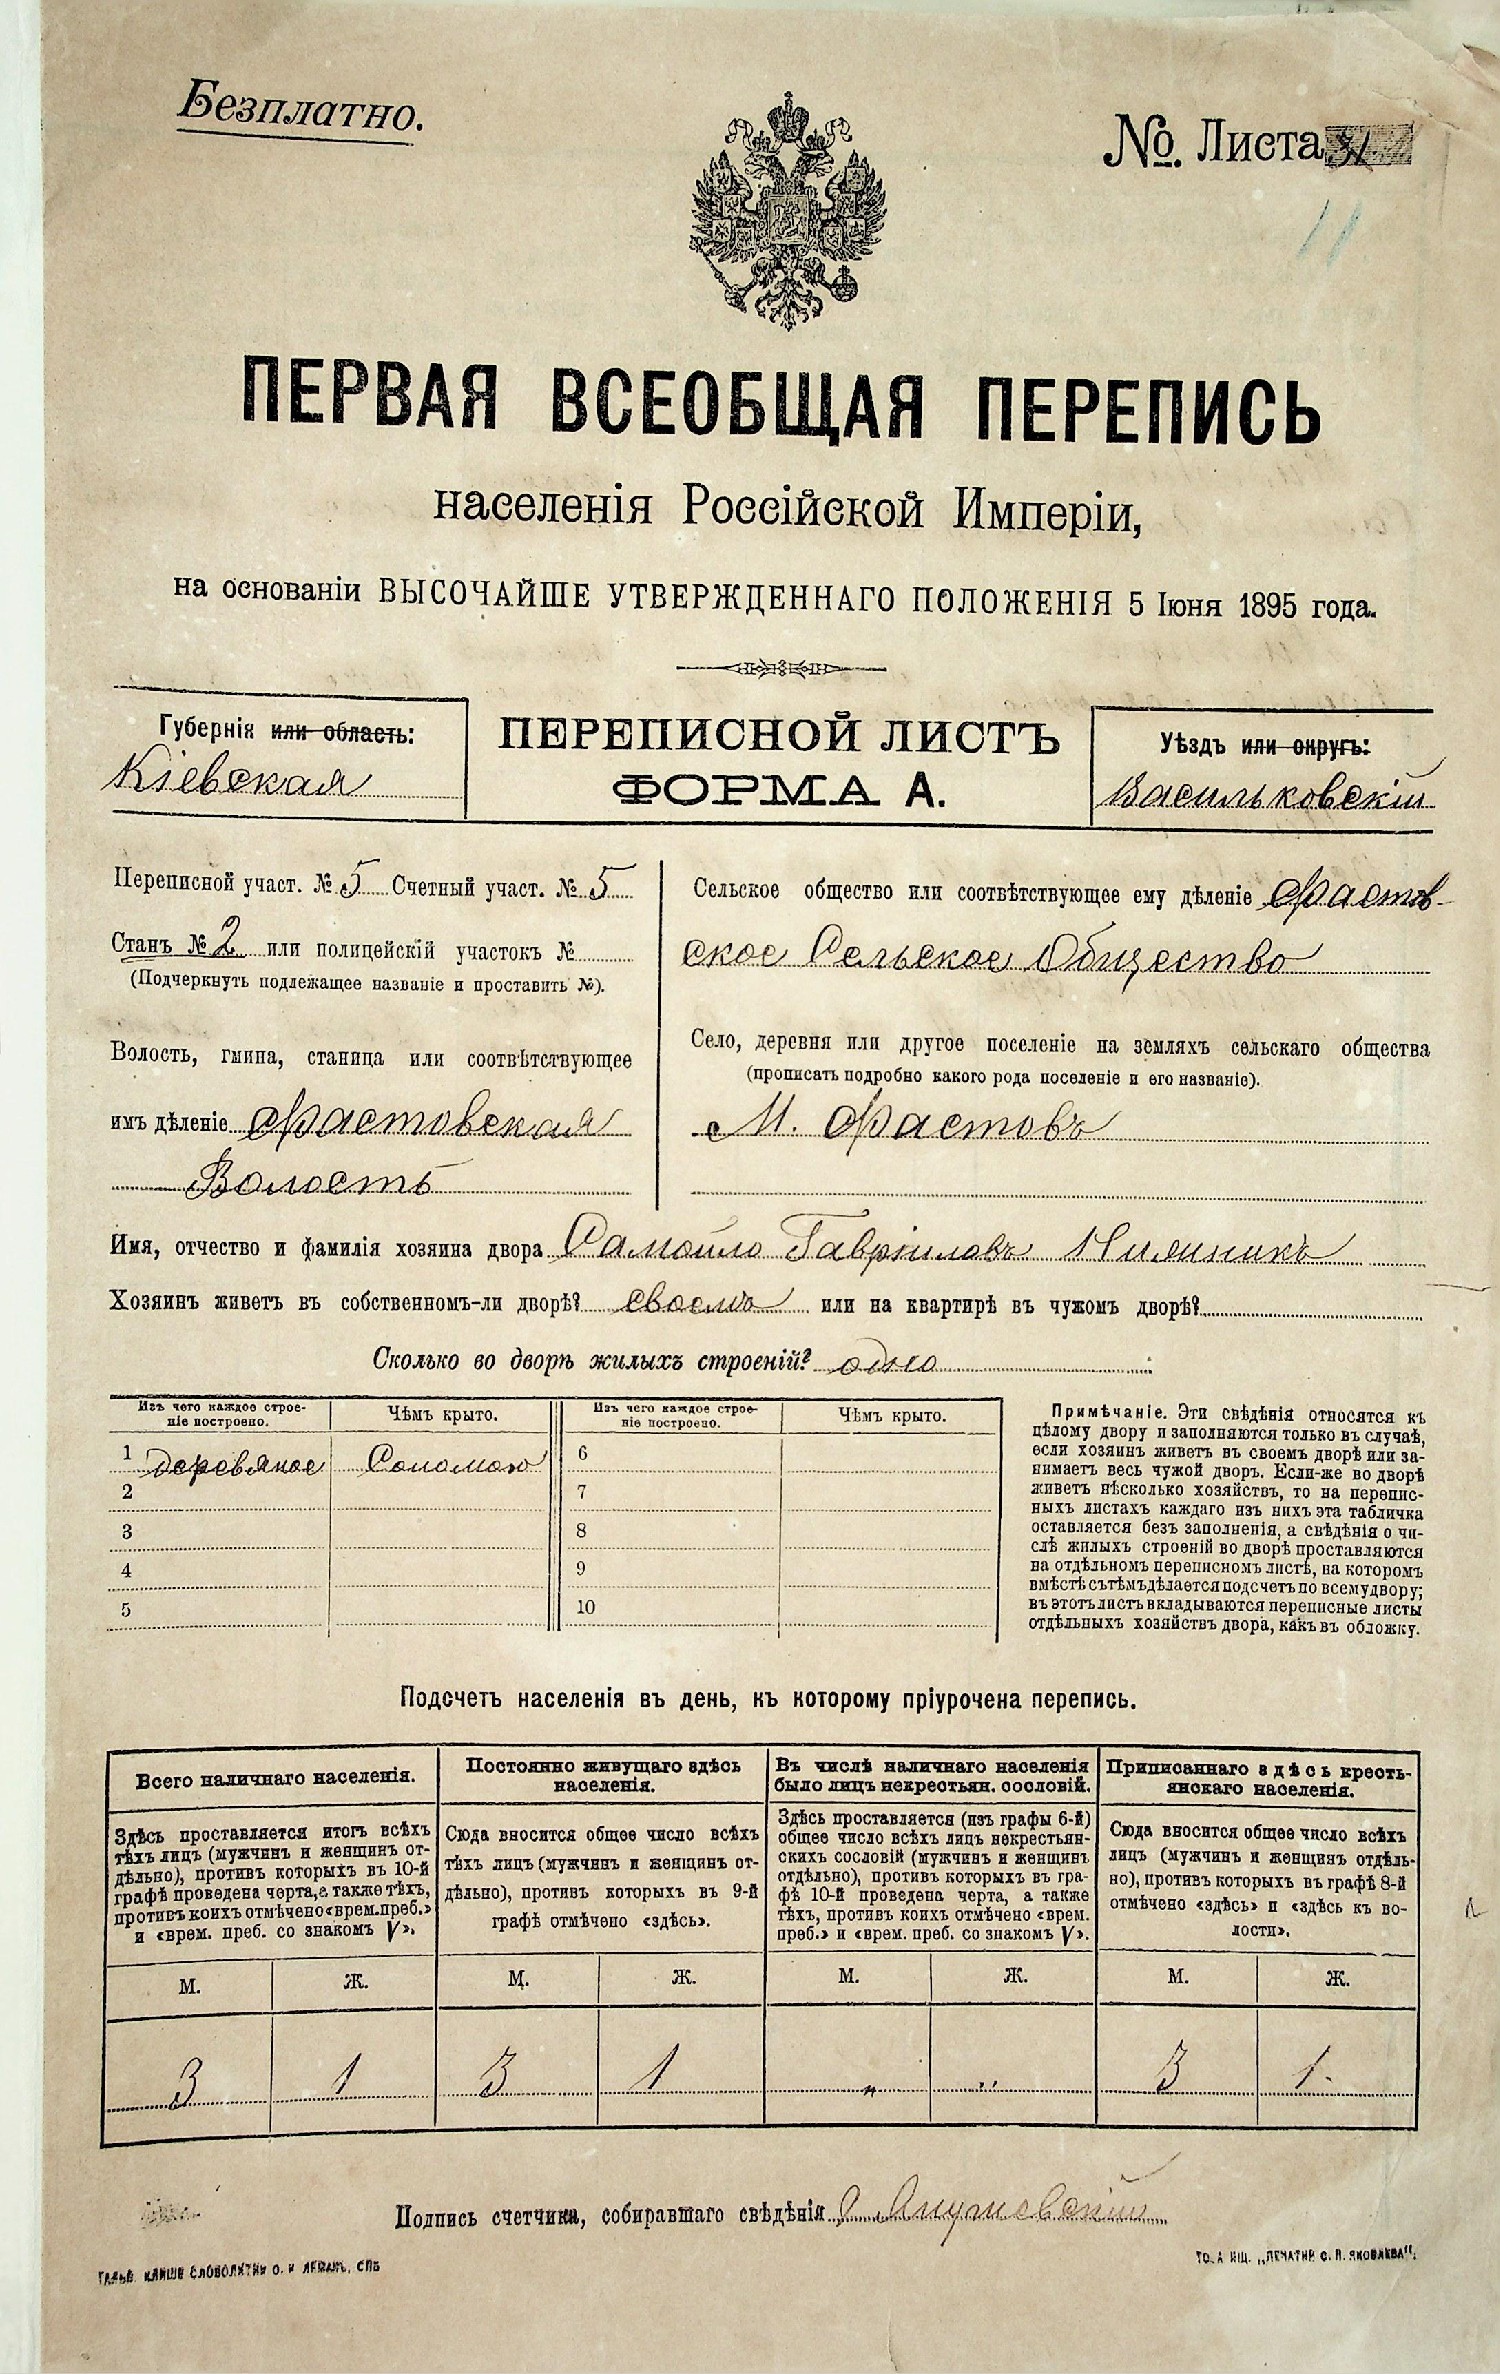 Безплатно.
№. Листа
11
ПЕРВАЯ ВСЕОБЩАЯ ПЕРЕПИСЬ
населенія Россійской Имперіи,
на основаніи ВЫСОЧАЙШЕ УТВЕРЖДЕННАГО ПОЛОЖЕНІЯ 5 Іюня 1895 года.
Губернія или область:
Кіевская
ПЕРЕПИСНОЙ ЛИСТЪ
ФОРМА А.
Уѣздъ или округъ:
Васильковскій
Переписной участ. № 5 Счетный участ. № 5
Станъ № 2 или полицейскій участокъ №
(Подчеркнуть подлежащее названіе и проставить №).
Волость, гмина, станица или соотвѣтствующее
имъ дѣленіе Фастовская
Волость
Сельское общество или соотвѣтствующее ему дѣленіе Фастов-
ское Сельское Общество
Село, деревня или другое поселеніе на земляхъ сельскаго общества
(прописать подробно какого рода поселеніе и его названіе).
М. Фастовъ
Имя, отчество и фамилія хозяина двора Самойло Гавріиловъ
Хозяинъ живетъ въ собственномъ-ли дворѣ? своемъ или на квартирѣ въ чужомъ дворѣ?
Сколько во дворѣ жилыхъ строеній? одно
Изъ чего каждое строе-
ніе построено.
Чѣмъ крыто.
Изъ чего каждое строе-
ніе построено.
Чѣмъ крыто.
1 деревяное Соломою 6
2 7
3 8
4 9
5 10
Примѣчаніе. Эти свѣдѣнія относятся къ
цѣлому двору и заполняются только въ случаѣ,
если хозяинъ живетъ въ своемъ дворѣ или за-
нимаетъ весь чужой дворъ. Если-же во дворѣ
живетъ нѣсколько хозяйствъ, то на перепис-
ныхъ листахъ каждаго изъ нихъ эта табличка
оставляется безъ заполненія, а свѣдѣнія о чи-
слѣ жилыхъ строеній во дворѣ проставляются
на отдѣльномъ переписномъ листѣ, на которомъ
вмѣстѣ съ тѣмъ дѣлается подсчетъ по всему двору;
въ этотъ листъ вкладываются переписные листы
отдѣльныхъ хозяйствъ двора, какъ въ обложку.
Подсчетъ населенія въ день, къ которому пріурочена перепись.
Всего наличнаго населенія.
Здѣсь проставляется итогъ всѣхъ
тѣхъ лицъ (мужчинъ и женщинъ от-
дѣльно), противъ которыхъ въ 10-й
графѣ проведена черта, а также тѣхъ,
противъ коихъ отмѣчено «врем. преб.»
и «врем. преб. со знакомъ V».
М. Ж.
3 1
Постоянно живущаго здѣсь
населенія.
Сюда вносится общее число всѣхъ
тѣхъ лицъ (мужчинъ и женщинъ от-
дѣльно), противъ которыхъ въ 9-й
графѣ отмѣчено «здѣсь».
М. Ж.
3 1
Въ числѣ наличнаго населенія
было лицъ некрестьян. сословій.
Здѣсь проставляется (изъ графы 6-й)
общее число всѣхъ лицъ некрестьян-
скихъ сословій (мужчинъ и женщинъ
отдѣльно), противъ которыхъ въ гра-
фѣ 10-й проведена черта, а также
тѣхъ, противъ коихъ отмѣчено «врем.
преб.» и «врем. преб. со знакомъ V».
М. Ж.
" "
Приписаннаго здѣсь кресть-
янскаго населенія.
Сюда вносится общее число всѣхъ
лицъ (мужчинъ и женщинъ отдѣль-
но), противъ которыхъ въ графѣ 8-й
отмѣчено «здѣсь» и «здѣсь къ во-
лости».
М. Ж.
3 1.
Подпись счетчика, собиравшаго свѣдѣнія
ГАЛЬВ. КЛИШЕ СЛОВОЛИТНИ О. И. ЛЕМАНЪ, СПБ
„ПЕЧАТНИ С. П. ЯКОВЛЕВА“.